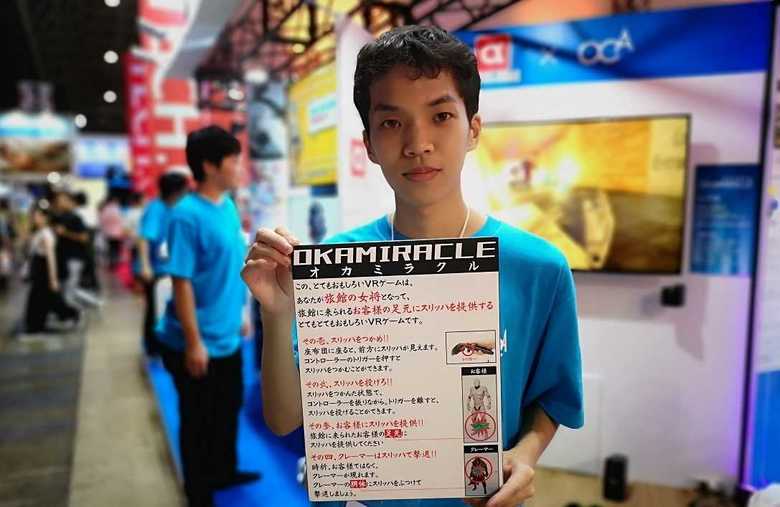 OKAMIRACLE
オカミラクル
この、とてもおもしろいVRゲームは、
あなたが旅館の女将となって、
旅館に来られるお客様の足元にスリッパを提供する
とてもとてもおもしろいVRゲームです。
その壱、スリッパをつかめ!!
座布団に座ると、前方にスリッパが見えます。
コントローラーのトリガーを押すと
スリッパをつかむことができます。
その弐、スリッパを投げろ!!
スリッパをつかんだ状態で、
コントローラーを振りながら、トリガーを離すと、
スリッパを投げることができます。
お客様
その参、お客様にスリッパを提供!!
旅館に来られたお客様の足元に
スリッパを提供してください
その四、クレーマーはスリッパで撃退!!
時折、お客様ではなく、
クレーマーが現れます。
クレーマーの胴体にスリッパをぶつけて
撃退しましょう。
クレーマー
α × OCA